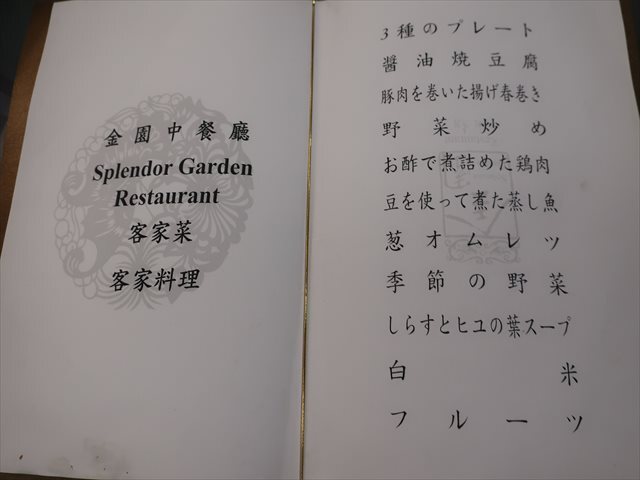 金園中餐廳
Splendor Garden
Restaurant
客家菜
客家料理
3種のプレート
醬油焼豆腐
豚肉を巻いた揚げ春巻き
野菜炒め
お酢で煮詰めた鶏肉
豆を使って煮た蒸し魚
葱オムレツ
季節の野菜
しらすとヒユの葉スープ
白米
フルーツ